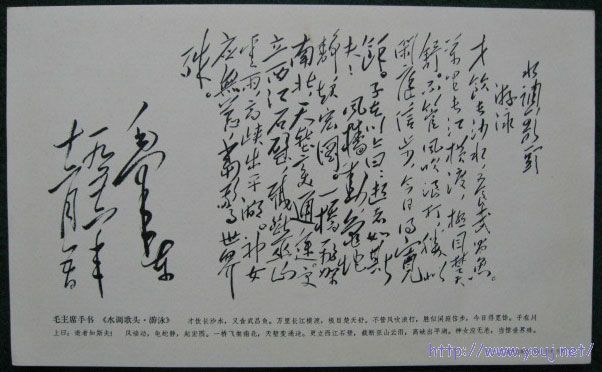 水調歌頭
游泳
才飲長沙水,又食武昌魚。
萬里長江橫渡,極目楚天
舒。不管風吹浪打,勝似
閑庭信步,今日得寬
餘。子在川上曰:逝者如斯
夫! 風檣動,龜蛇
靜,起宏圖。一橋飛架
南北,天塹變通途。更
立西江石壁,截斷巫山
雲雨,高峽出平湖。神女
應無恙,當驚世界
殊。
毛澤東
一九五六年
十二月五日
毛主席手书 《水调歌头·游泳》 才饮长沙水,又食武昌鱼。万里长江横渡,极目楚天舒。不管风吹浪打,胜似闲庭信步,今日得宽馀。子在川
上曰:逝者如斯夫! 风樯动,龟蛇静,起宏图。一桥飞架南北,天堑变通途。更立西江石壁,截断巫山云雨,高峡出平湖。神女应无恙,当惊世界殊。
http://www.youj.net/